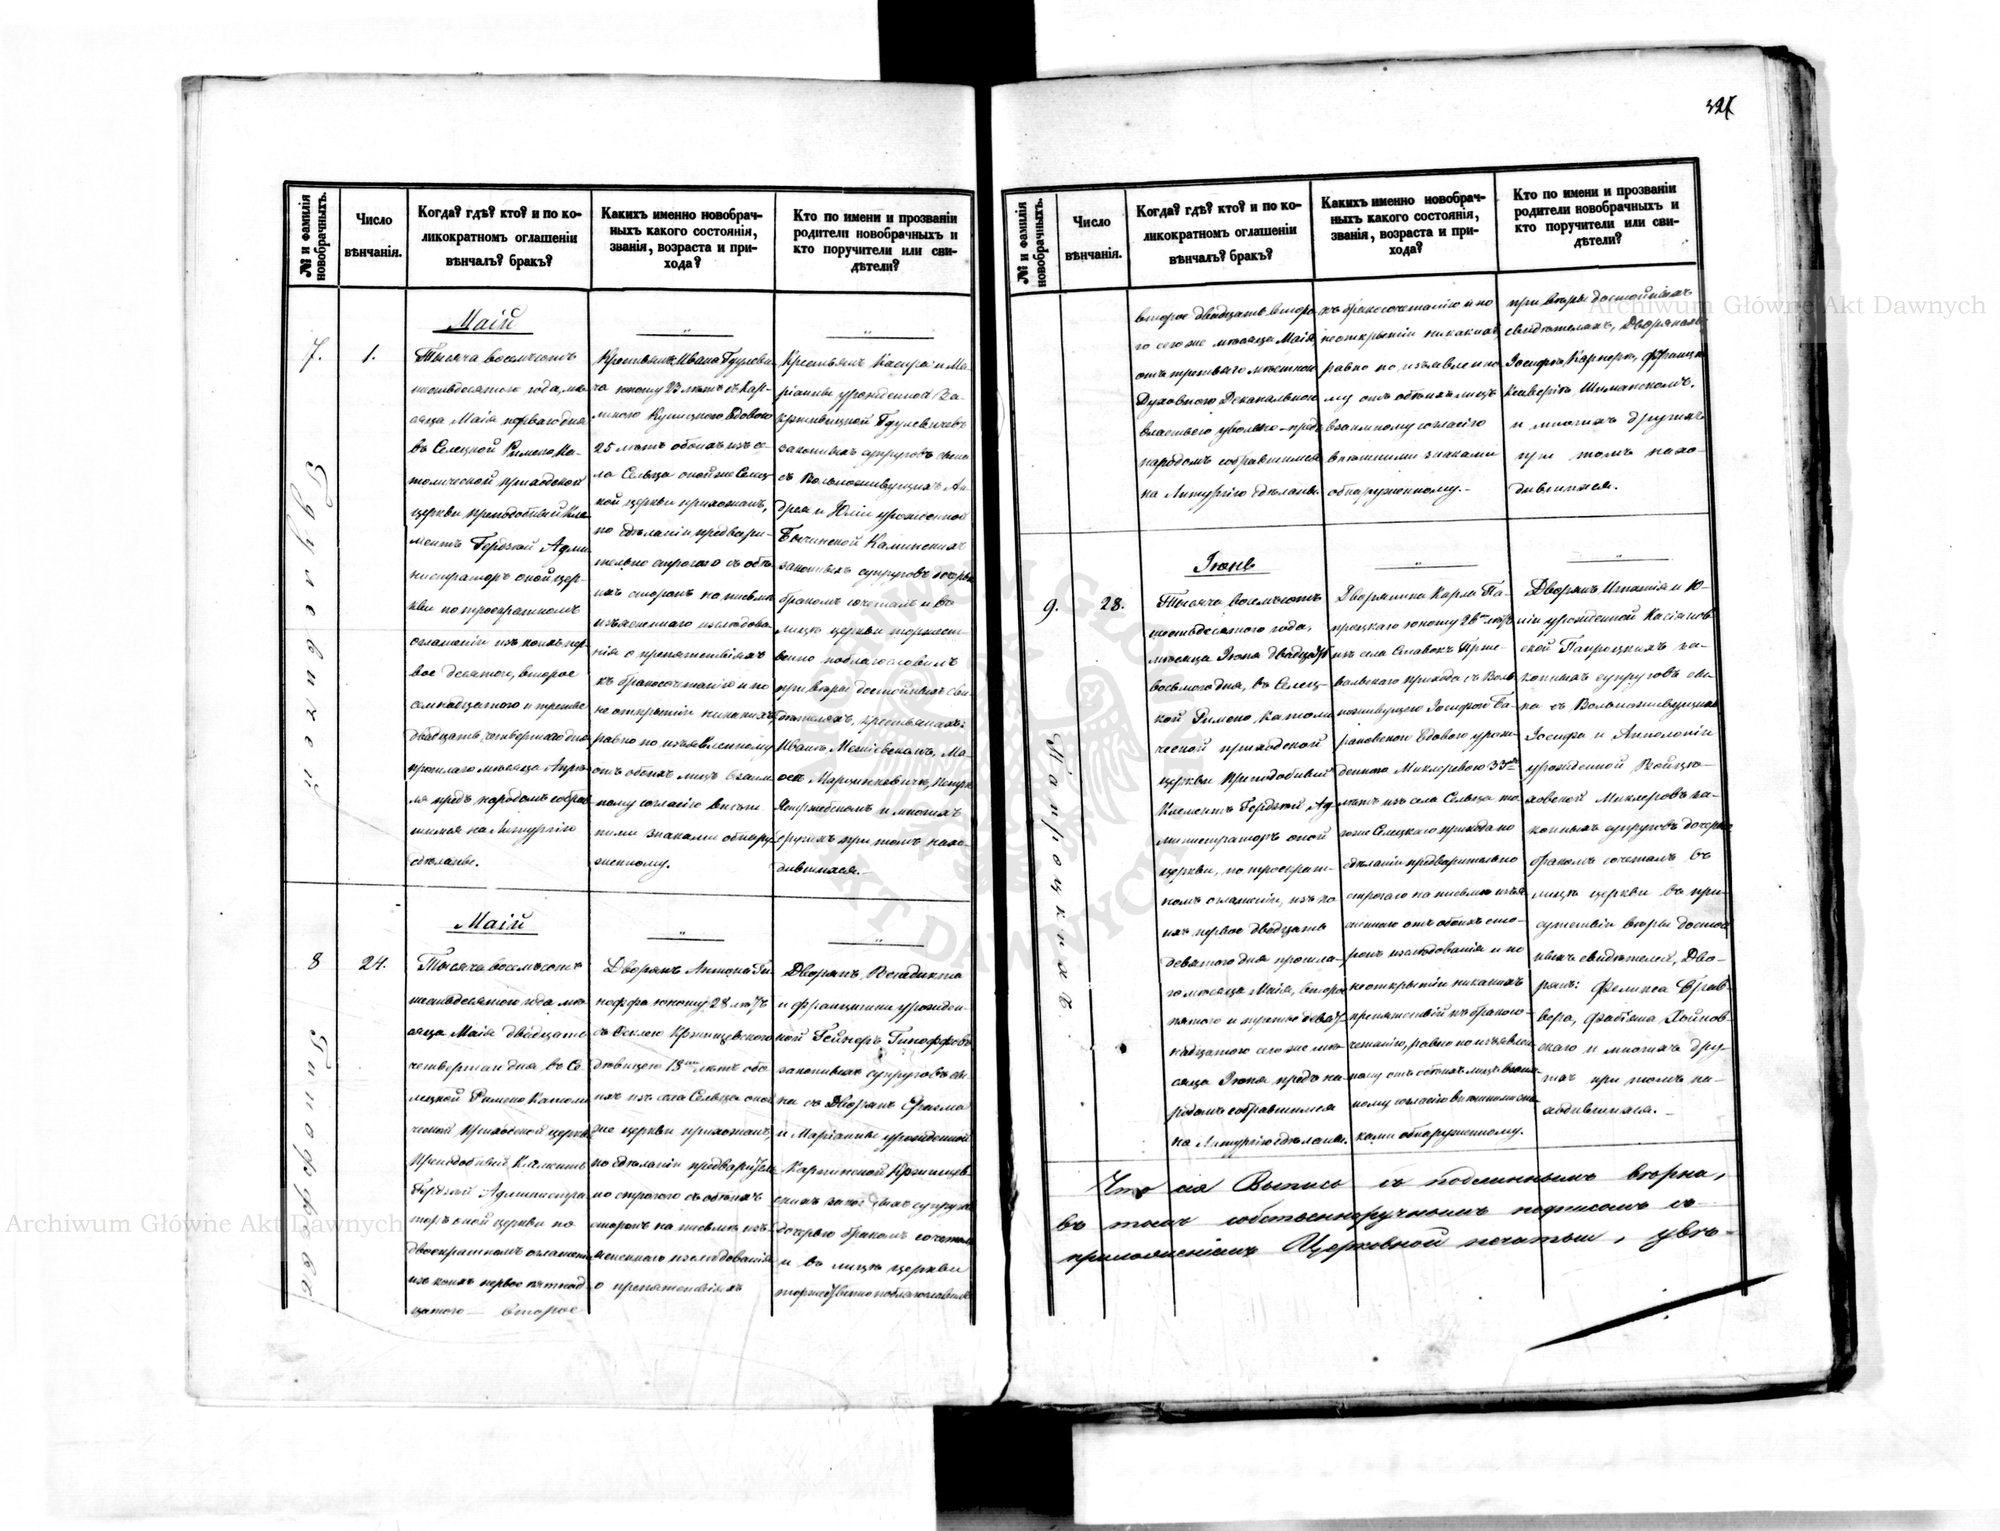 327
№ и фамилія новобрачныхъ.
Число вѣнчанія.
Когда? гдѣ? кто? и по ко-
ликократномъ оглашеніи
вѣнчалъ? бракъ?
Какихъ именно новобрач-
ныхъ какого состоянія,
званія, возраста и при-
хода?
Кто по имени и прозваніи
родители новобрачныхъ и
кто поручители или сви-
дѣтели?
Маій
7.
1.
Тысяча восемьсотъ
шестьдесятого года, мѣ-
сяца Маія перваго дня
въ Селецкой Римско Ка-
толической приходской
церкви преподобный Кле-
ментъ Герdзкій Адми-
нистраторъ оной цер-
кви по троекратномъ
оглашеніи изъ коихъ пер-
вое десятого, второе
семнадцатого и третіе
двадцать четвертаго дня
прошлаго мѣсяца Апрѣ-
ля предъ народомъ собрав-
шимся на Литургію
сдѣланы.
Крестьянъ Ивана Гдулеви-
ча юношу 23 лѣтъ съ Кар-
25 лѣтъ обоихъ изъ се-
ла Сельца оной же Селец-
кой церкви прихожанъ,
по сдѣланіи предвари-
тельно строгаго съ обѣ-
ихъ сторонъ на письмѣ
изъясненнаго изслѣдова-
нія о препятствіяхъ
къ бракосочетанію и по
неоткрытіи никакихъ
равно по изъявленному
отъ обоихъ лицъ взаим-
ному согласію внѣш-
ними знаками обнару-
женному.
Крестьянъ Каспра и Ма-
ріанны урожденной За-
Гдулевичевъ
законныхъ супруговъ сына
съ Вольноживущихъ Ан-
дрея и Юліи урожденной
Бычинской Каминскихъ
законныхъ супруговъ дочерью
бракомъ сочеталъ и въ
лицѣ церкви торжест-
венно поблагословилъ
при вѣры достойныхъ сви-
дѣтеляхъ, крестьянахъ:
другихъ при томъ нахо-
дившихся.
Гдулевичей
Маій
8
24.
Тысяча восемьсотъ
шестьдесятого года мѣ-
сяца Маія двадцать
четвертаго дня въ Се-
лецкой Римско Католи-
ческой Приходской церкви
Преподобный Клементъ
Герdзкій Администра-
торъ оной церкви по
двоекратномъ оглашеніи
изъ коихъ первое пятнад-
цатого второе
Дворянъ Антона Ги-
ноффа юношу 28 лѣтъ
съ Феклею Кржишевского
дѣвицею 18 лѣтъ обо-
ихъ изъ села Сельца оной
же церкви прихожанъ,
по сдѣланіи предварител-
но строгаго съ обоихъ
сторонъ на письмѣ изъ-
ясненнаго изслѣдованія
о препятствіяхъ
Дворянъ Венедикта
и Францишки урожден-
ной Гейнеръ Гиноффовъ
законныхъ супруговъ сы-
на съ Дворянъ Фразма
и Маріанны урожденной
Карпинской Кржишев-
скихъ законныхъ супруговъ
дочерью бракомъ сочеталъ
и въ лицѣ церкви
торжественно поблагословилъ
Гиноффовъ
№ и фамилія новобрачныхъ.
Число вѣнчанія.
Когда? гдѣ? кто? и по ко-
ликократномъ оглашеніи
вѣнчалъ? бракъ?
Какихъ именно новобрач-
ныхъ какого состоянія,
званія, возраста и при-
хода?
Кто по имени и прозваніи
родители новобрачныхъ и
кто поручители или сви-
дѣтели?
второе двадцать второ-
го сего же мѣсяца Маія
отъ третьяго мѣстною
Духовного Деканального
властью уволено предъ
народомъ собравшимся
на Литургію сдѣланы.
къ бракосочетанію и по
неоткрытіи никакихъ
равно по изъявленно-
му отъ обоихъ лицъ
взаимному согласію
внѣшними знаками
обнаруженному.
при вѣры достойныхъ
свидѣтеляхъ, Дворянахъ
Іосифѣ Карпорѣ, Францѣ
Ксаверіѣ Шиманскомъ,
и многихъ другихъ
при томъ нахо-
дившихся.
Іюнь
9.
28.
Тысяча восемьсотъ
шестьдесятого года,
мѣсяца Іюня двадцать
восьмого дня, въ Селец-
кой Римско Католи-
ческой приходской
церкви Преподобный
Клементъ Герdзкій Ад-
министраторъ оной
церкви, по троекрат-
номъ оглашеніи, изъ ко-
ихъ первое двадцать
девятого дня прошла-
го мѣсяца Маія, второе
пятого и третіе девят-
надцатого сего же мѣ-
сяца Іюня предъ на-
родомъ собравшимся
на Литургію сдѣланы.
Дворянина Карла Па-
процкаго юношу 26 лѣтъ
изъ села Ставокъ Прше-
вальскаго прихода съ Воль-
ноживущею Іосифой Ба-
рановскою вдовою урож-
денною Миклеровою 33
лѣтъ изъ села Сельца то-
го же Селецкаго прихода по
сдѣланіи предварительно
строгаго на письмѣ изъя-
сненнаго отъ обоихъ сто-
ронъ изслѣдованія и по
неоткрытіи никакихъ
препятствій къ бракосо-
четанію, равно по изъявлен-
ному отъ обоихъ лицъ взаим-
ному согласію внѣшними зна-
ками обнаруженному.
Дворянъ Игнатія и Ю-
ліи урожденной Касіанов-
ской Папроцкихъ за-
конныхъ супруговъ сы-
на съ Вольноживущихъ
Іосифа и Апполоніи
урожденной Войцѣ-
ховской Миклеровъ за-
конныхъ супруговъ дочерью
бракомъ сочеталъ въ
лицѣ церкви въ при-
сутствіи вѣры достой-
ныхъ свидѣтелей, Дво-
рянъ: Феликса Врав-
вера, Фабіяна Хойнов-
скаго и многихъ дру-
гихъ при томъ на-
ходившихся.
Папроцкихъ
Что сія Выпись съ подлиннымъ вѣрна,
въ томъ собственноручнымъ подписомъ съ
приложеніемъ Церковной печатьи, увѣ-